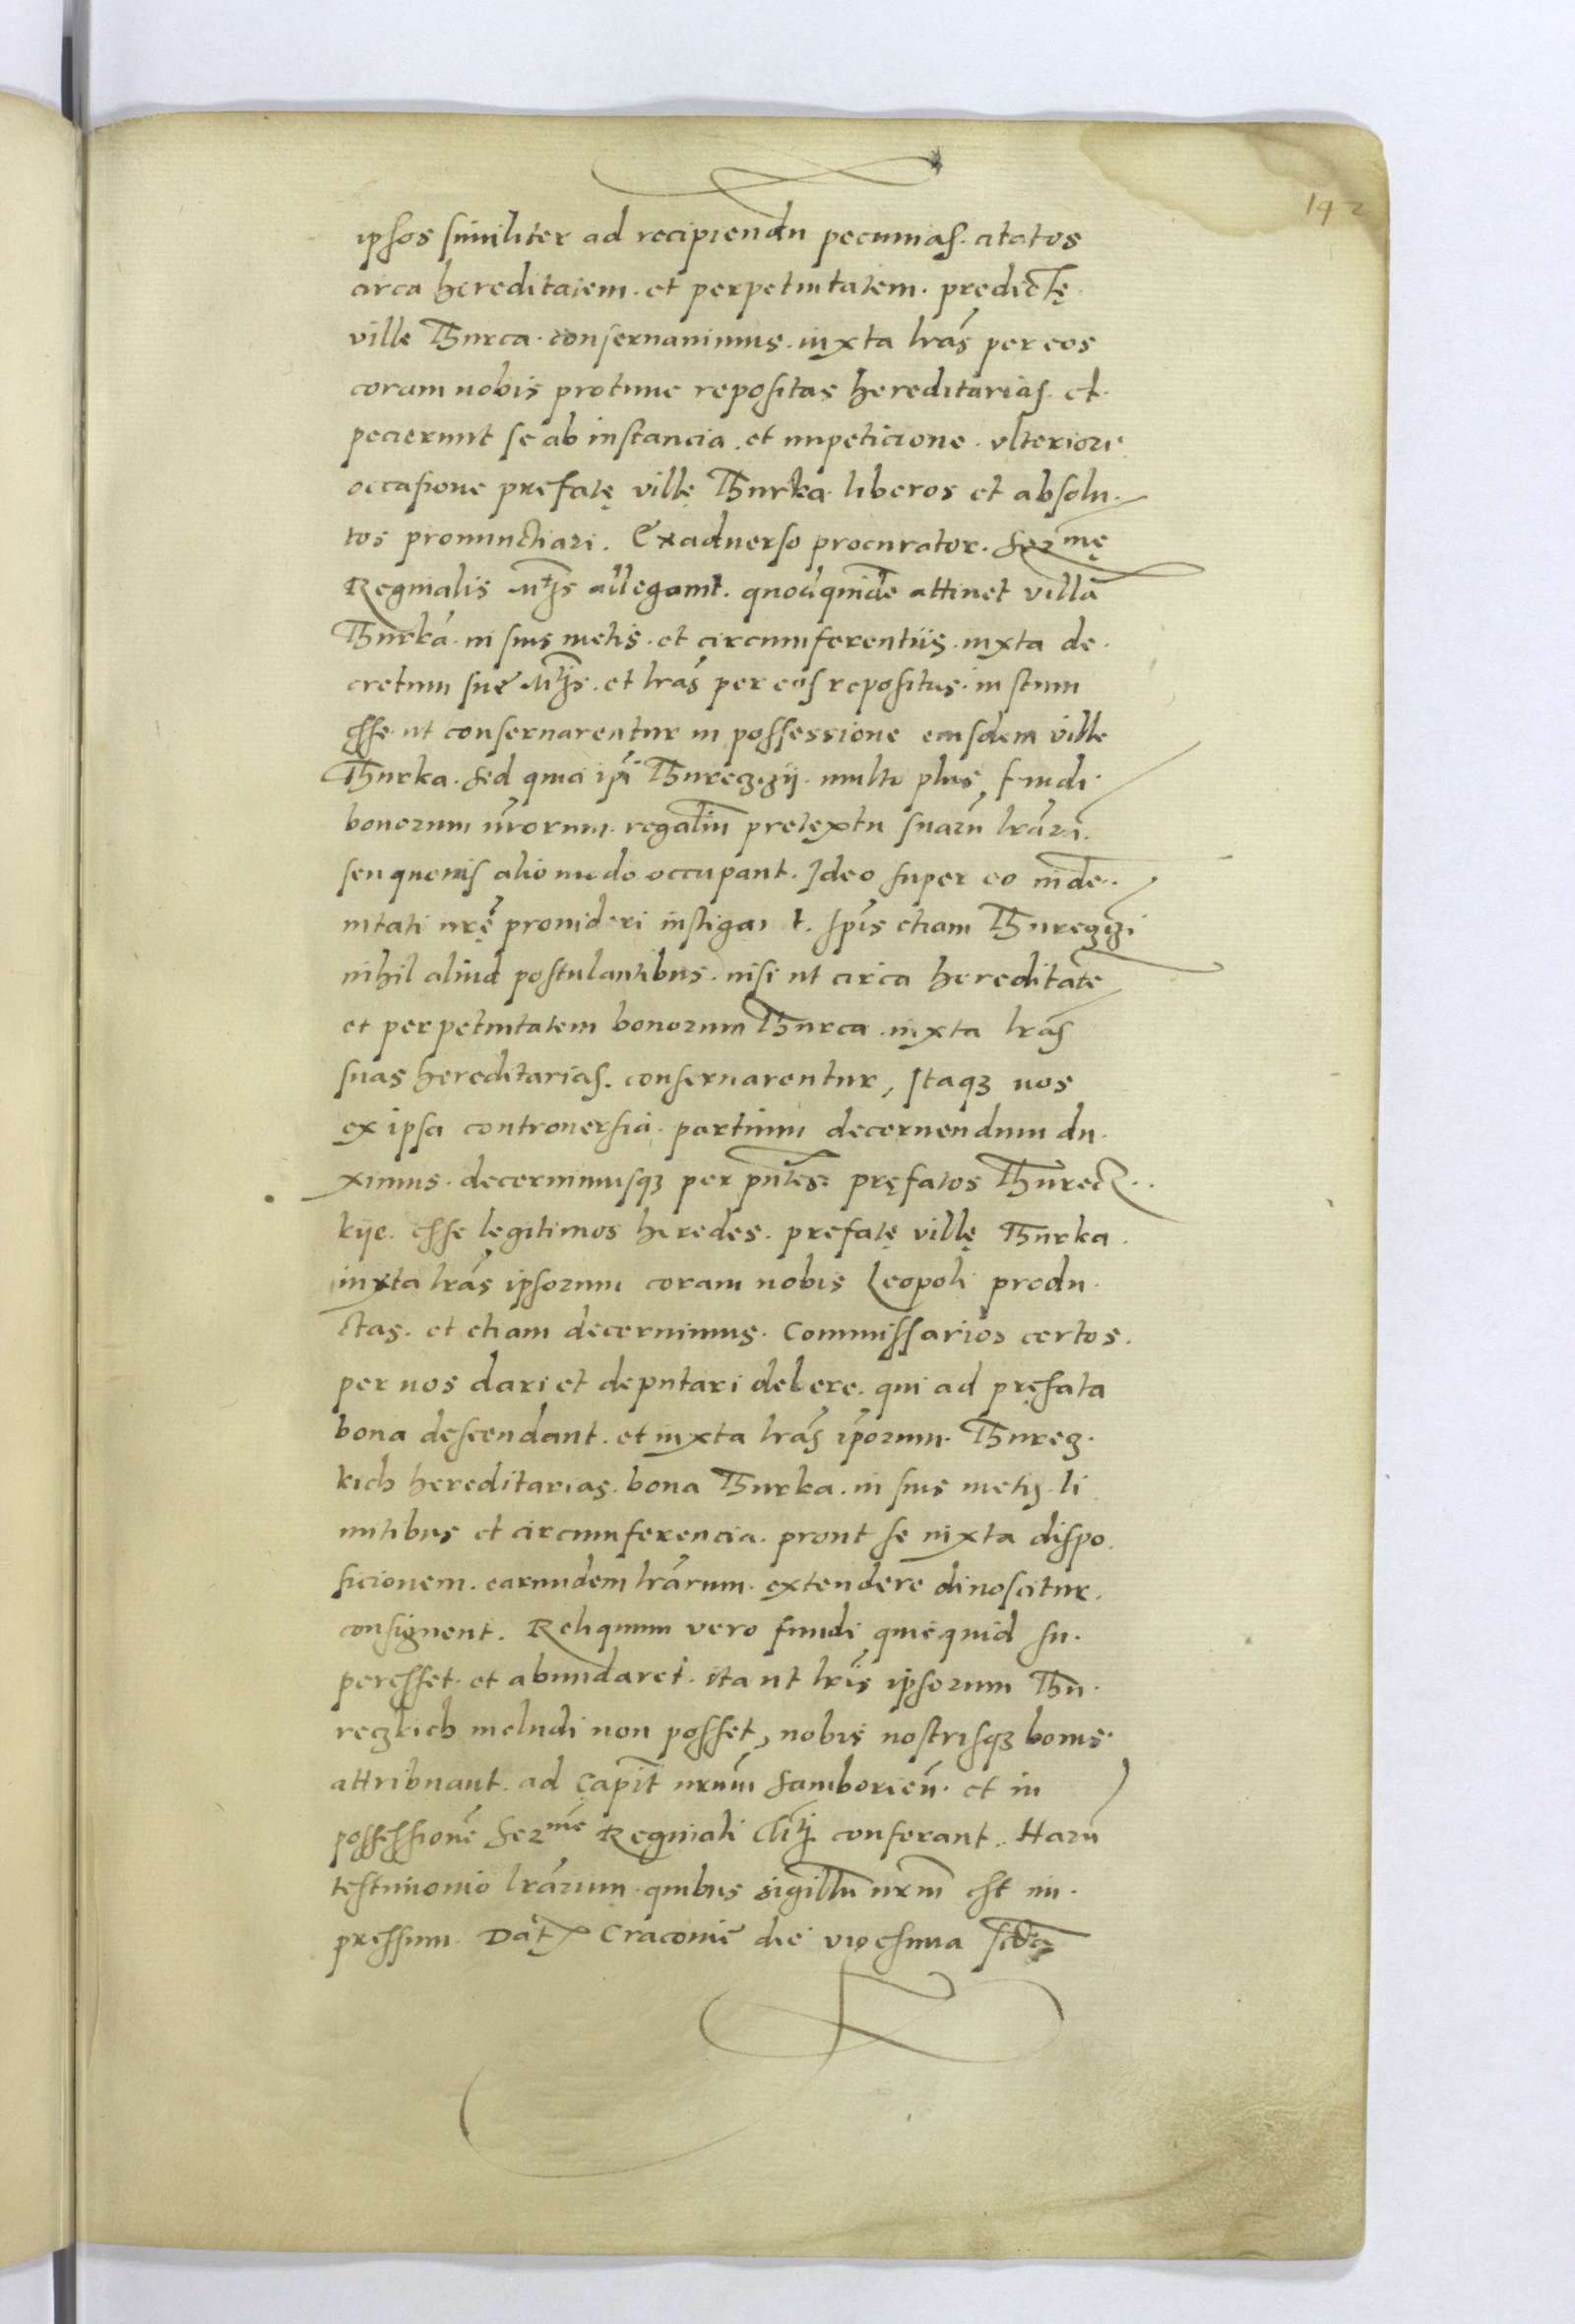 142
ipsos similiter ad recipiendū pecunias. citatos
circa hereditatem. et perpetuitatem. predictę.
ville Thurca. conseruauimus. iuxta lrās per eos
coram nobis protunc repositas hereditarias. et.
pecierunt se ab instancia. et impeticione. vlteriori
occasione prefatę villę Thurka. liberos et absolu.
tos pronunctiari. Exaduerso procurator. Serᵐᵉ̨
Reginalis Mtꝭs allegauit. quodquidē attinet villā
Thurkā. in suis metis. et circumferentiis. iuxta de.
cretum sue Mtꝭs. et lrās per eos repositas. iustum
esse. ut conseruarentur in possessione eiusdem ville
Thurka. sed quia ip̄i Thureczczij. multo plus fundi
bonorum nr̄orum. regaliū pretextu suarū lrārū.
seu quouis alio modo occupant. Ideo super eo inde.
nitati nrę̄ prouideri instigauit. Ip̄is etiam Thureczczi
nihil aliud postulantibus. nisi ut circa hereditatē
et perpetuitatem bonorum Thurca. iuxta lrās
suas hereditarias. conseruarentur, Itaqꝫ nos
ex ipsa controuersia. partium decernendum du.
ximus. decernimusqꝫ per pn̄tes: pręfatos Thurecz..
kije. esse legitimos heredes. prefatę villę Thurka.
iuxta lrās ipsorum coram nobis Leopoli produ.
ctas. et etiam decernimus. Commissarios certos.
per nos dari et deputari debere. qui ad pręfata
bona descendant. et iuxta lrās ip̄orum. Thurecz.
kich hereditarias. bona Thurka. in suis metis. li
mitibus et circumferencia. prout se iuxta dispo.
sicionem. earundem lrārum. extendere dinoscitur.
consignent. Reliquum vero fundi quicquid su.
peresset. et abundaret. ita ut lrīs ipsorum Thu.
reczkich includi non posset, nobis nostrisqꝫ bonis
attribuant. ad Capit̄ nrum̄ Samborień. et in
possessionē Serᵐᵉ Reginali Mtꝭ conferant. Harū
testimonio lrārum. quibus sigillū nrm̄ est im.
pressum. Dat̄ Cracouie die vigesima scd̄a